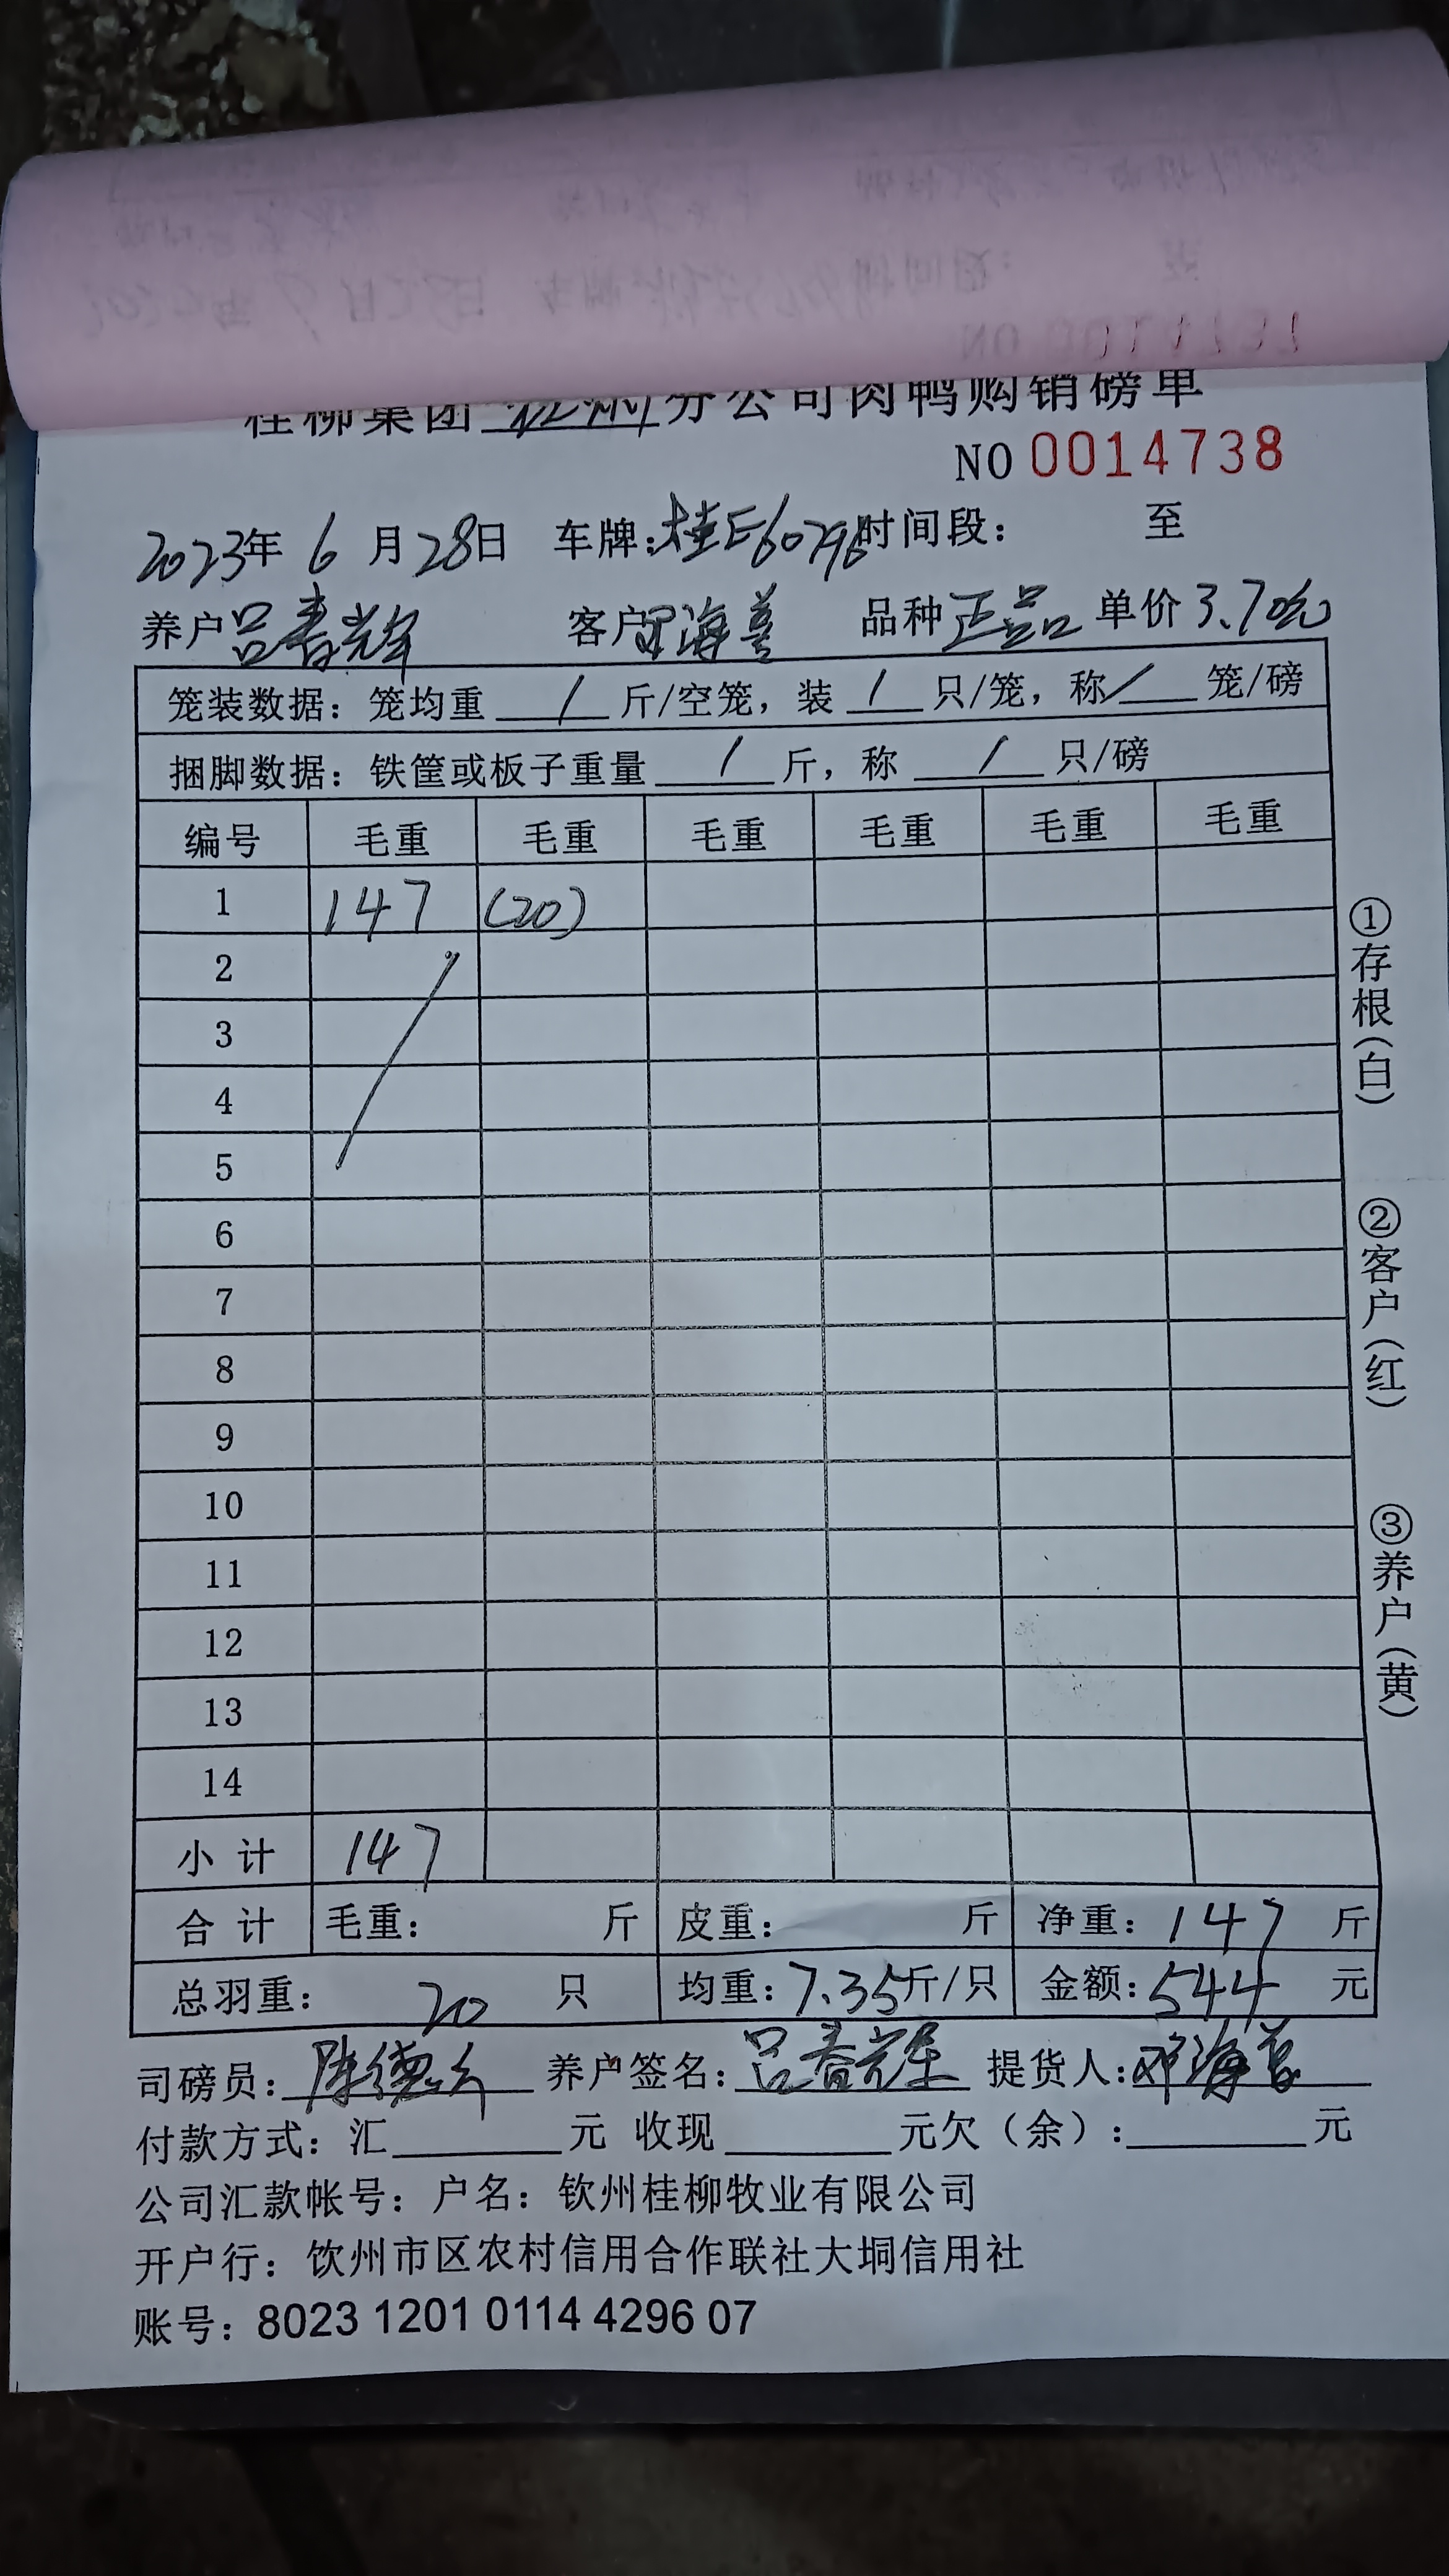 桂柳集团 分公司肉鸭购销磅单
NO 0014738
2023年 6 月 28日 车牌:桂E60796时间段: 至
养户 吕春辉 客户 邓海善 品种 正品 单价 3.70元
笼装数据: 笼均重 / 斤/空笼, 装 / 只/笼, 称 / 笼/磅
捆脚数据: 铁筐或板子重量 / 斤, 称 / 只/磅
编号 毛重 毛重 毛重 毛重 毛重 毛重
1 147 (20)
2
3
4
5
6
7
8
9
10
11
12
13
14
小 计 147
合 计 毛重: 斤 皮重: 斤 净重: 147 斤
总羽重: 20 只 均重: 7.35斤/只 金额: 544 元
司磅员: 养户签名: 吕春辉 提货人: 邓海善
付款方式: 汇 元 收现 元欠(余): 元
公司汇款帐号: 户名: 钦州桂柳牧业有限公司
开户行: 饮州市区农村信用合作联社大垌信用社
账号: 8023 1201 0114 4296 07
①存根(白)
②客户(红)
③养户(黄)